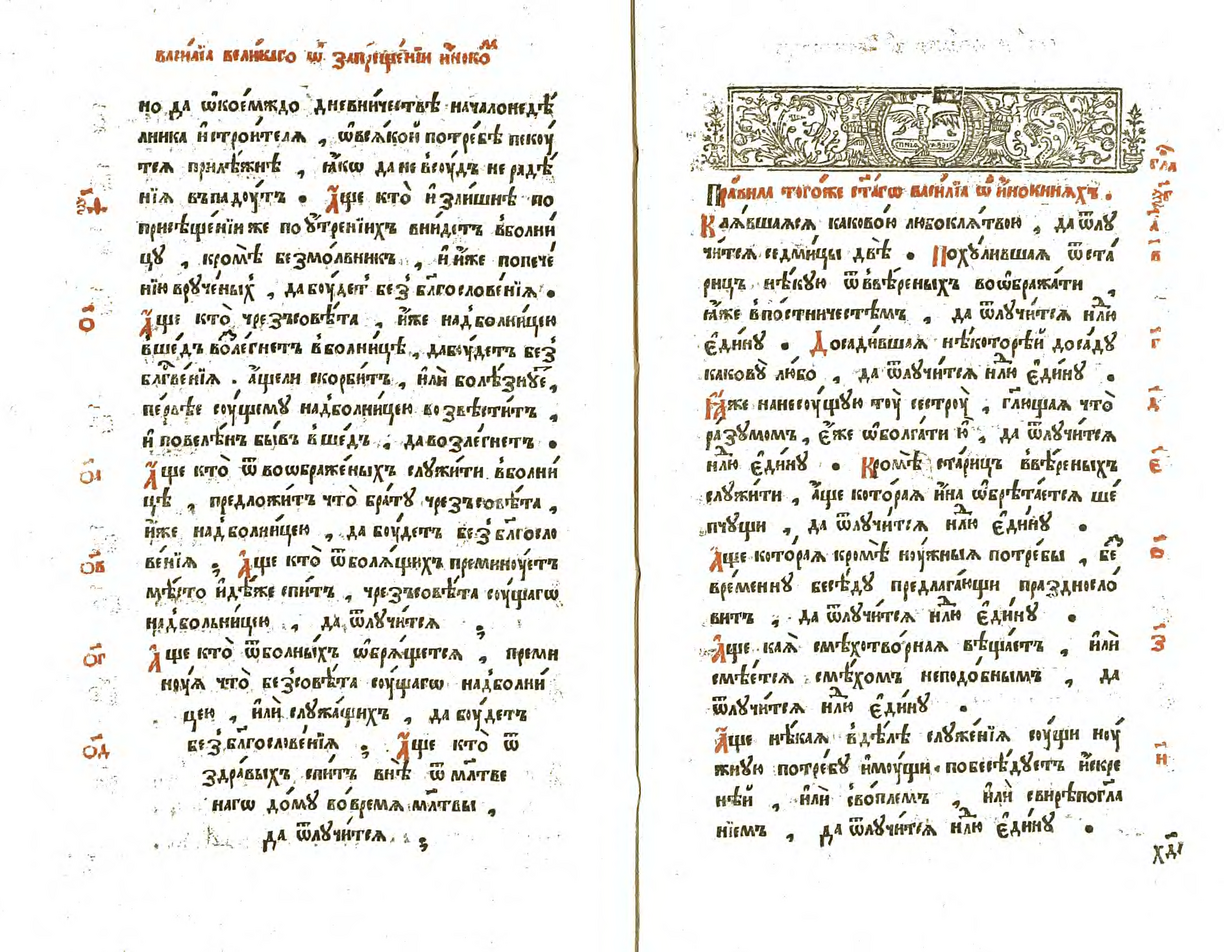 василїа великаго ѿ запрещенїи инокѡм
но да ѡкоемждо дневничествѣ началонедѣ
лника истроителя , ѡвсякой потребѣ пекоу
тся прилѣжнѣ , ꙗкѡ да не всоудъ не радѣ
нїя въпадоутъ . Аще кто излишнѣ по
присѣщенїи же по утренїихъ внидетъ вболни
цу , кромѣ безмолвникъ , и иже попече
нїю врученых , да боудет без блгословенїя .
Аще кто чрезъсовѣта , иже надболницею
вшедъ возлегнетъ вболницѣ , да боудетъ без
блгвенїя . ащели скорбитъ , или болѣзнуе ,
первѣе соущему надболницею возвѣститъ ,
и повелѣн бывъ вшедъ , да возлегнетъ .
Аще кто ѿ воѡбраженыхъ служити вболни
цѣ , предложитъ что брату чрезъсовѣта ,
иже надболницею , да боудетъ без блгосло
венїя ; Аще кто ѿболящихъ преминоуетъ
мѣсто идѣже спитъ , чрезъсовѣта соущагѡ
надбольницею , да ѿлучится ;
Аще кто ѿболныхъ ѡбрящется , преми
ноуя что безсовѣта соущагѡ надболни
цею , или служащихъ , да боудетъ
без благословенїя ; Аще кто ѿ
здравыхъ спитъ внѣ ѿ млтве
нагѡ дому вовремя млтвы ,
да ѿлучится ;
о
оа
ов
ог
од
Правила тогоже стагѡ василїа ѡ инокиняхъ .
Каявшаяся каковою любоклятвою , да ѿлу
чится седмицы двѣ . Похулившая ѿста
рицъ нѣкую ѿввѣреныхъ воѡбражати ,
ꙗже впостничествѣмъ , да ѿлучится нлю
едину . Досадившая нѣкоторѣй досаду
какову любо , да ѿлучится нлю едину .
Ꙗже нанесоущую тоу сестроу , глющая что
разумомъ , еже ѡболгати ю , да ѿлучится
нлю едину . Кромѣ старицъ ввѣреныхъ
служити , аще которая ина ѡбрѣтается ше
пчущи , да ѿлучится нлю едину .
Аще которая кромѣ ноужныя потребы , бе
временну бесѣду предлагающи празднсло
витъ , да ѿлучится нлю едину .
Аще кая смѣхотворная вѣщаетъ , или
смѣется смѣхомъ неподобнымъ , да
ѿлучится нлю едину .
Аще нѣкая вдѣлѣ служенїя соущи ноу
жную потребу имоущи . побесѣдуетъ искре
нѣй , или своплемъ , или свирѣпогла
нїемъ , да ѿлучится нлю едину .
гла
в
г
д
е
ѕ
з
и